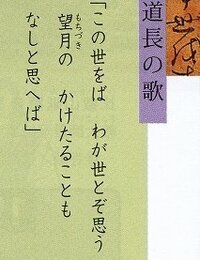 道長の歌
「この世をば　わが世とぞ思う
望月の　かけたることも
もちづき
なしと思へば」